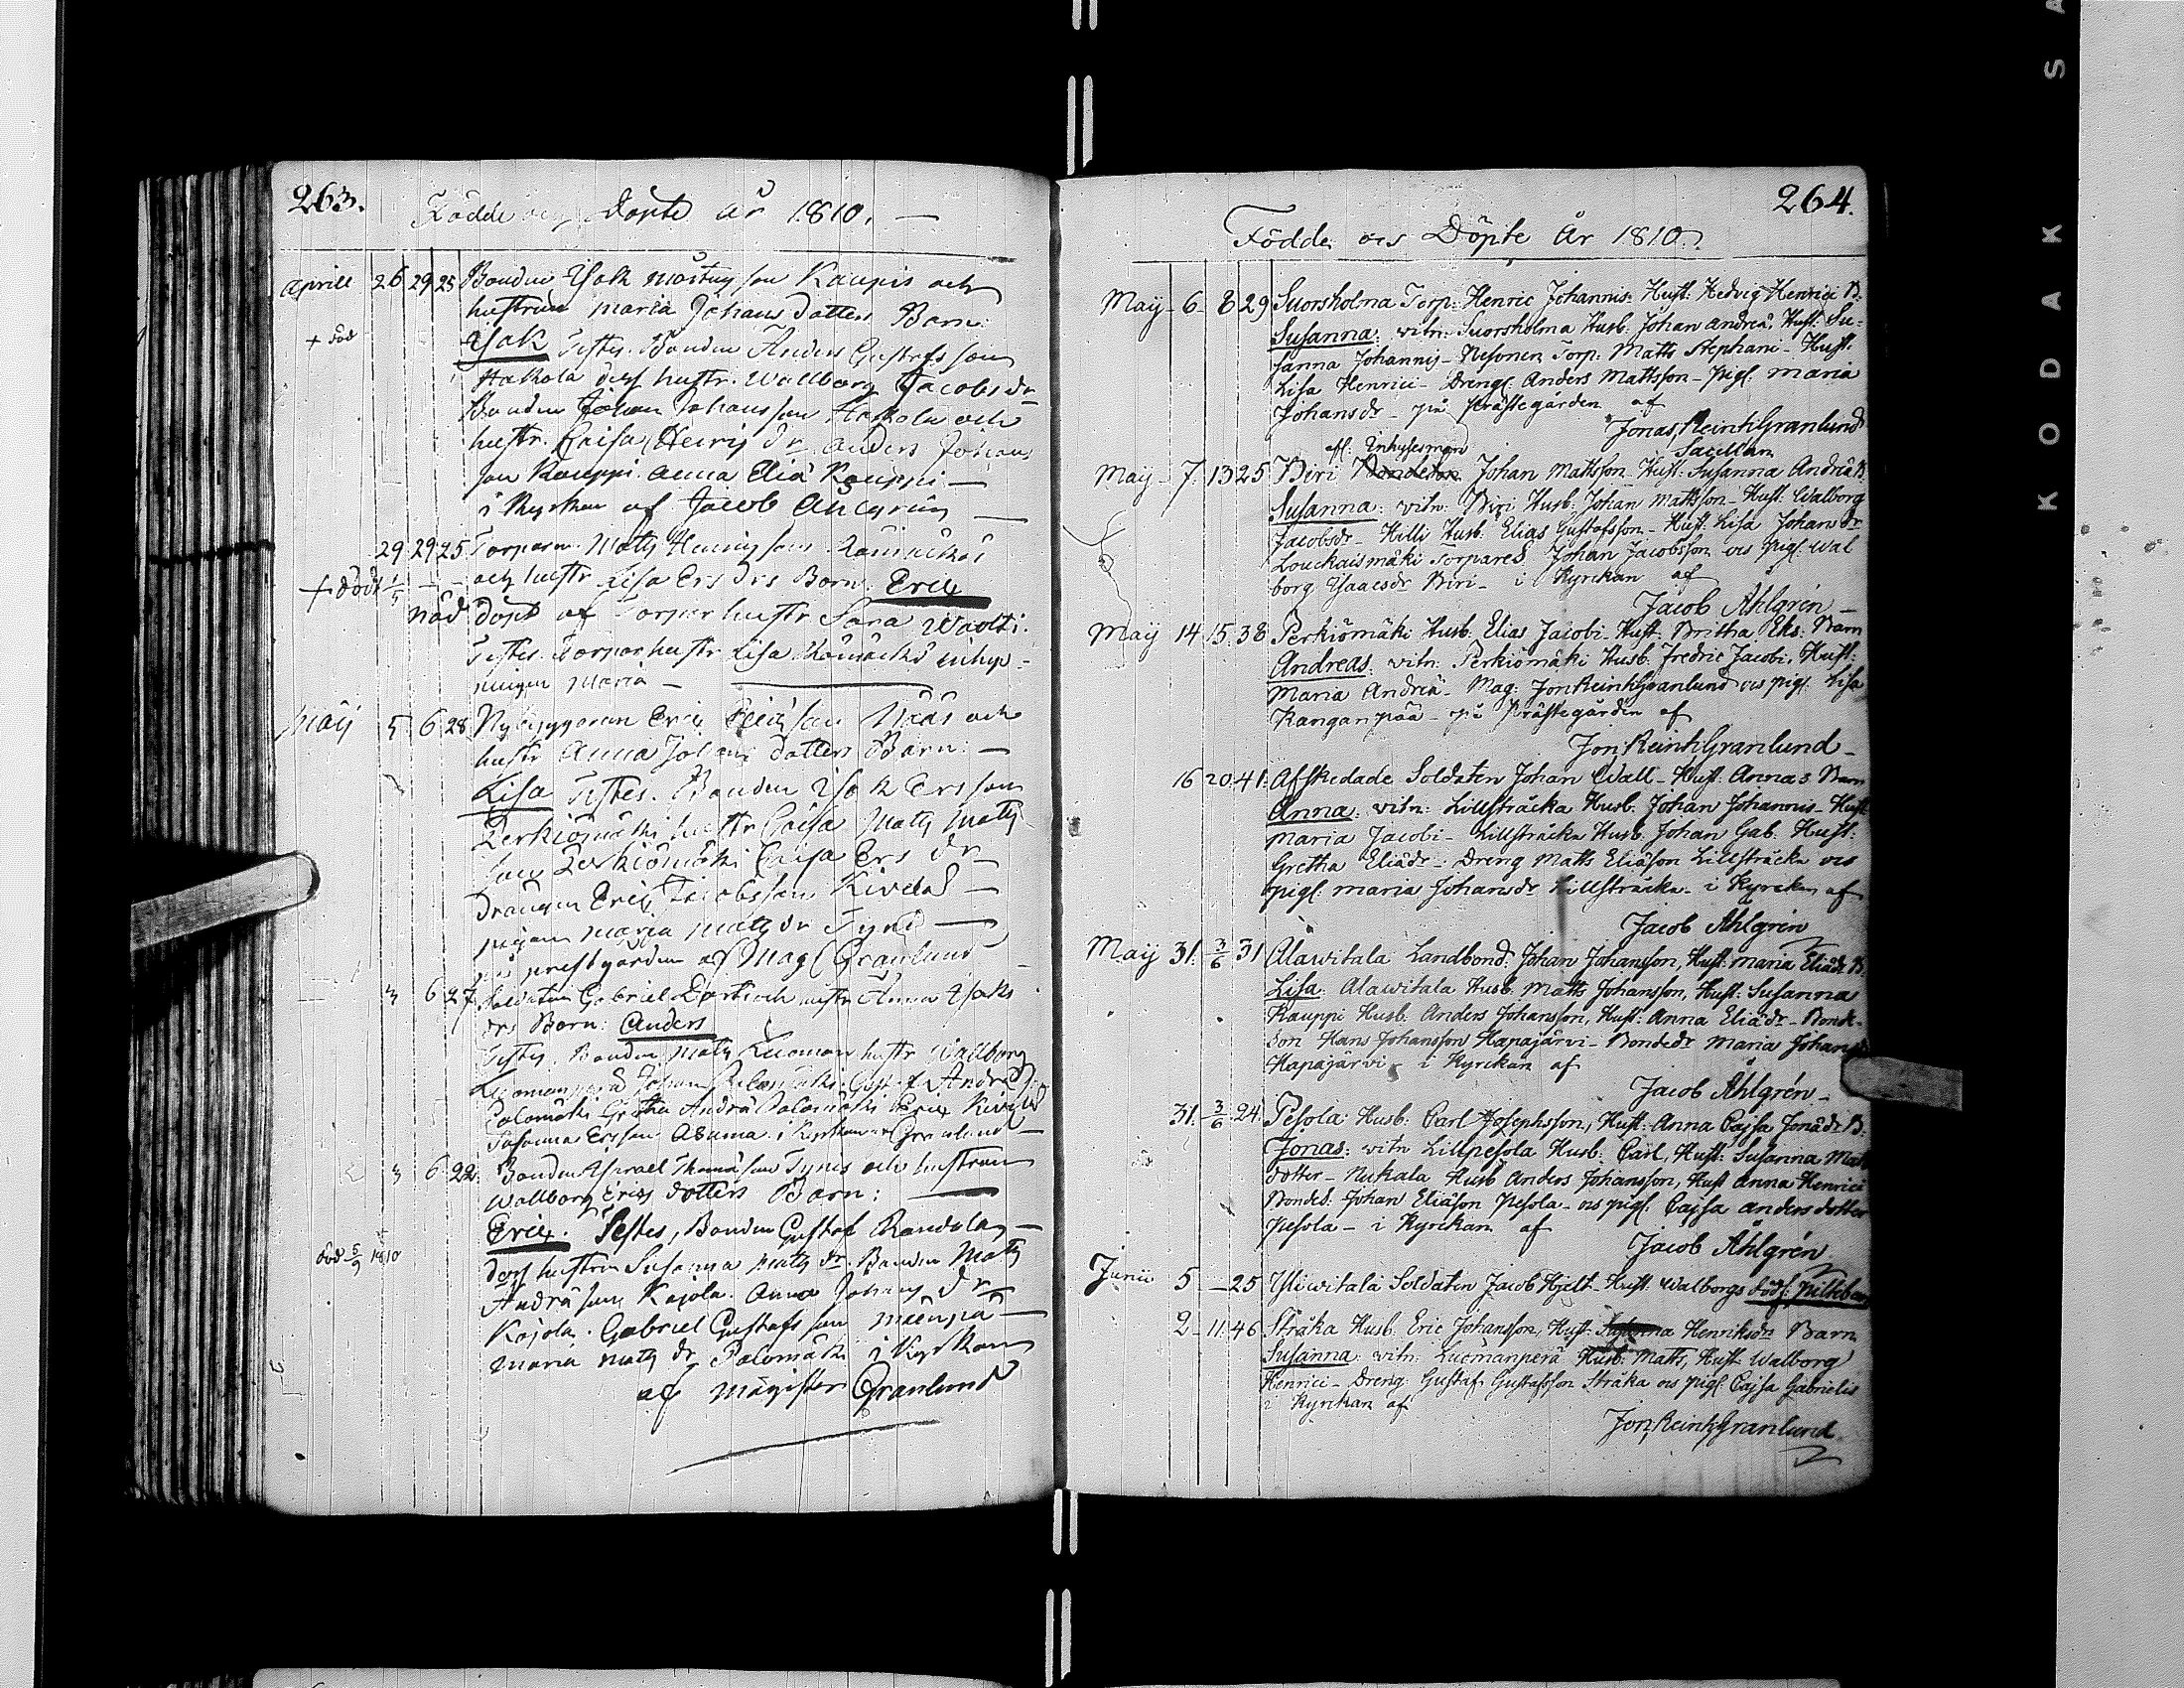 263.
Födde och Döpte år 1810.
Aprill 26 29 25 Bonden Isak Mårtensson Kauppis och
hustrun Maria Johans dotters Barn:
+ död
Isak Testes. Bonden Anders Gustafs son
Hakola dess hustr. Wallborg Jacobs dr
Bonden Johan Johansson Hakola och
hustr. Caisa Henrix dr. Anders Johans
son Kauppi. Anna Eliæ Kauppi —
i Kyrkan af Jacob Ahlgrén —
29 29 25 Torparn Matts Henrixsons
och hustr Lisa Ers drs Barn: Eric
+ död 1/5
nöd döpt af Torpar hustr Sara Wactti.
Testes. Torpar hustr Lisa
pigan Maria —
Maij 5 6 28 Nybyggaren Eric Näås och
hustr Anna Johans dotters Barn: —
Lisa Testes. Bonden Isak Ersson
Perkiömäki hustr Caisa Matts Matts
son Perkiömäki Caisa Ers dr
Drängen Eric Jacobsson Kivelä —
pigan Maria Matts dr Tyni —
på prestgården af Mag. Granlund
3 6 27 Soldaten Gabriel och hustr Anna Isaks
drs Barn: Anders
Testes. Bonden Matts Luoman hustr Wallborg
Luomanperä Johan Palomäki Gustaf Andræ
Palomäki Gretha Andræ Palomäki Eric Kivelä
Susanna Ersson Asuma. i Kyrkan af Granlund
3 6 22 Bonden Israel Thomæson Tynis och hustrun
Wallborg Erics dotters Barn: —
Eric. Testes, Bonden Gustaf Randala —
dess hustru Susanna Matts dr. Bonden Matts
död 5/9 1810
Andræ son Kojola. Anna Johans dr —
Kojola. Gabriel Gustafs son Mäenpä —
Maria Matts dr Palomäki i Kyrkan
af Magister Granlund
264.
Födde och Döpte År 1810.
Maij 6 8 29 Suorsholma Torp: Henric Johannis: Hust: Hedvig Henrici B:
Susanna: vitn: Suorsholma Husb: Johan Andreæ, Hust: Su-
sanna Johannis - Nesonen Torp: Matts Stephani - Hust:
Lisa Henrici - Dreng: Anders Mattsson - Pig: Maria
Johansdr - på Prästegården af
Jonas Reinh Granlund
Sacellan
Inhysesman
May 7 13 25 Biri Johan Mattsson Hust: Susanna Andreæ B:
Susanna: vitn: Biri Husb: Johan Mattsson - Hust: Walborg
Jacobsdr - Hilli Husb: Elias Gustafsson - Hust: Lisa Johansdr
Louckaismäki Torpares Johan Jacobsson och pig: Wal
borg Isaacsdr Biri - i Kyrckan af
Jacob Åhlgrén —
Maij 14 15 38 Perkiömäki Husb: Elias Jacobi - Hust: Britha Eks: Barn
Andreas: vitn: Perkiömäki Husb: Fredric Jacobi, Hust:
Maria Andreæ - Mag: Jon Reinh Granlund och pig: Lisa
Kanganpää - på Prästegården af
Jon: Reinh Granlund —
16 20 41 Afskedade Soldaten Johan Wall - Hust: Annas Barn
Anna: vitn: Lillsträcka Husb: Johan Johannis - Hust
Maria Jacobi - Lillsträcka Husb: Johan Gab: Hust:
Gretha Eliædr - Dreng Matts Eliæson Lillsträcka och
pig: Maria Johansdr Lillsträcka - i Kyrckan af
Jacob Åhlgrén
Maij 31 3/6 31 Alawitala Landbond: Johan Johansson, Hust: Maria Eliædr B:
Lisa: Alawitala Husb: Matts Johansson, Hust: Susanna
Kauppi Husb: Anders Johansson, Hust: Anna Eliædr - Bonde-
son Hans Johansson Hapajärvi - Bondedr Maria Johansdr
Hapajärvi - i Kyrckan af
Jacob Åhlgrén —
31 3/6 24 Pesola: Husb: Carl Josephsson, Hust: Anna Cajsa Jonædr B:
Jonas: vitn Lillpesola Husb: Carl, Hust: Susanna Mats
dotter - Nukala Husb Anders Johansson, Hust Anna Henrici
Bondes: Johan Eliæson Pesola - och pig: Cajsa Anders dotter
Pesola - i Kyrckan af
Jacob Åhlgrén
Junii 5 — 25 Yliwitala Soldaten Jacob Hjelt Hust: Walborgs död: Piltebarn
2 11 46 Stråka Husb: Eric Johansson, Hust: Henriksdr: Barn
Susanna: vitn: Luomanperä Husb: Matts, Hust Walborg
Henrici - Dreng: Gustaf Gustafsson Stråka och pig: Cajsa Gabrielis
i Kyrckan af
Jon, Reinh, Granlund
KODAK SA